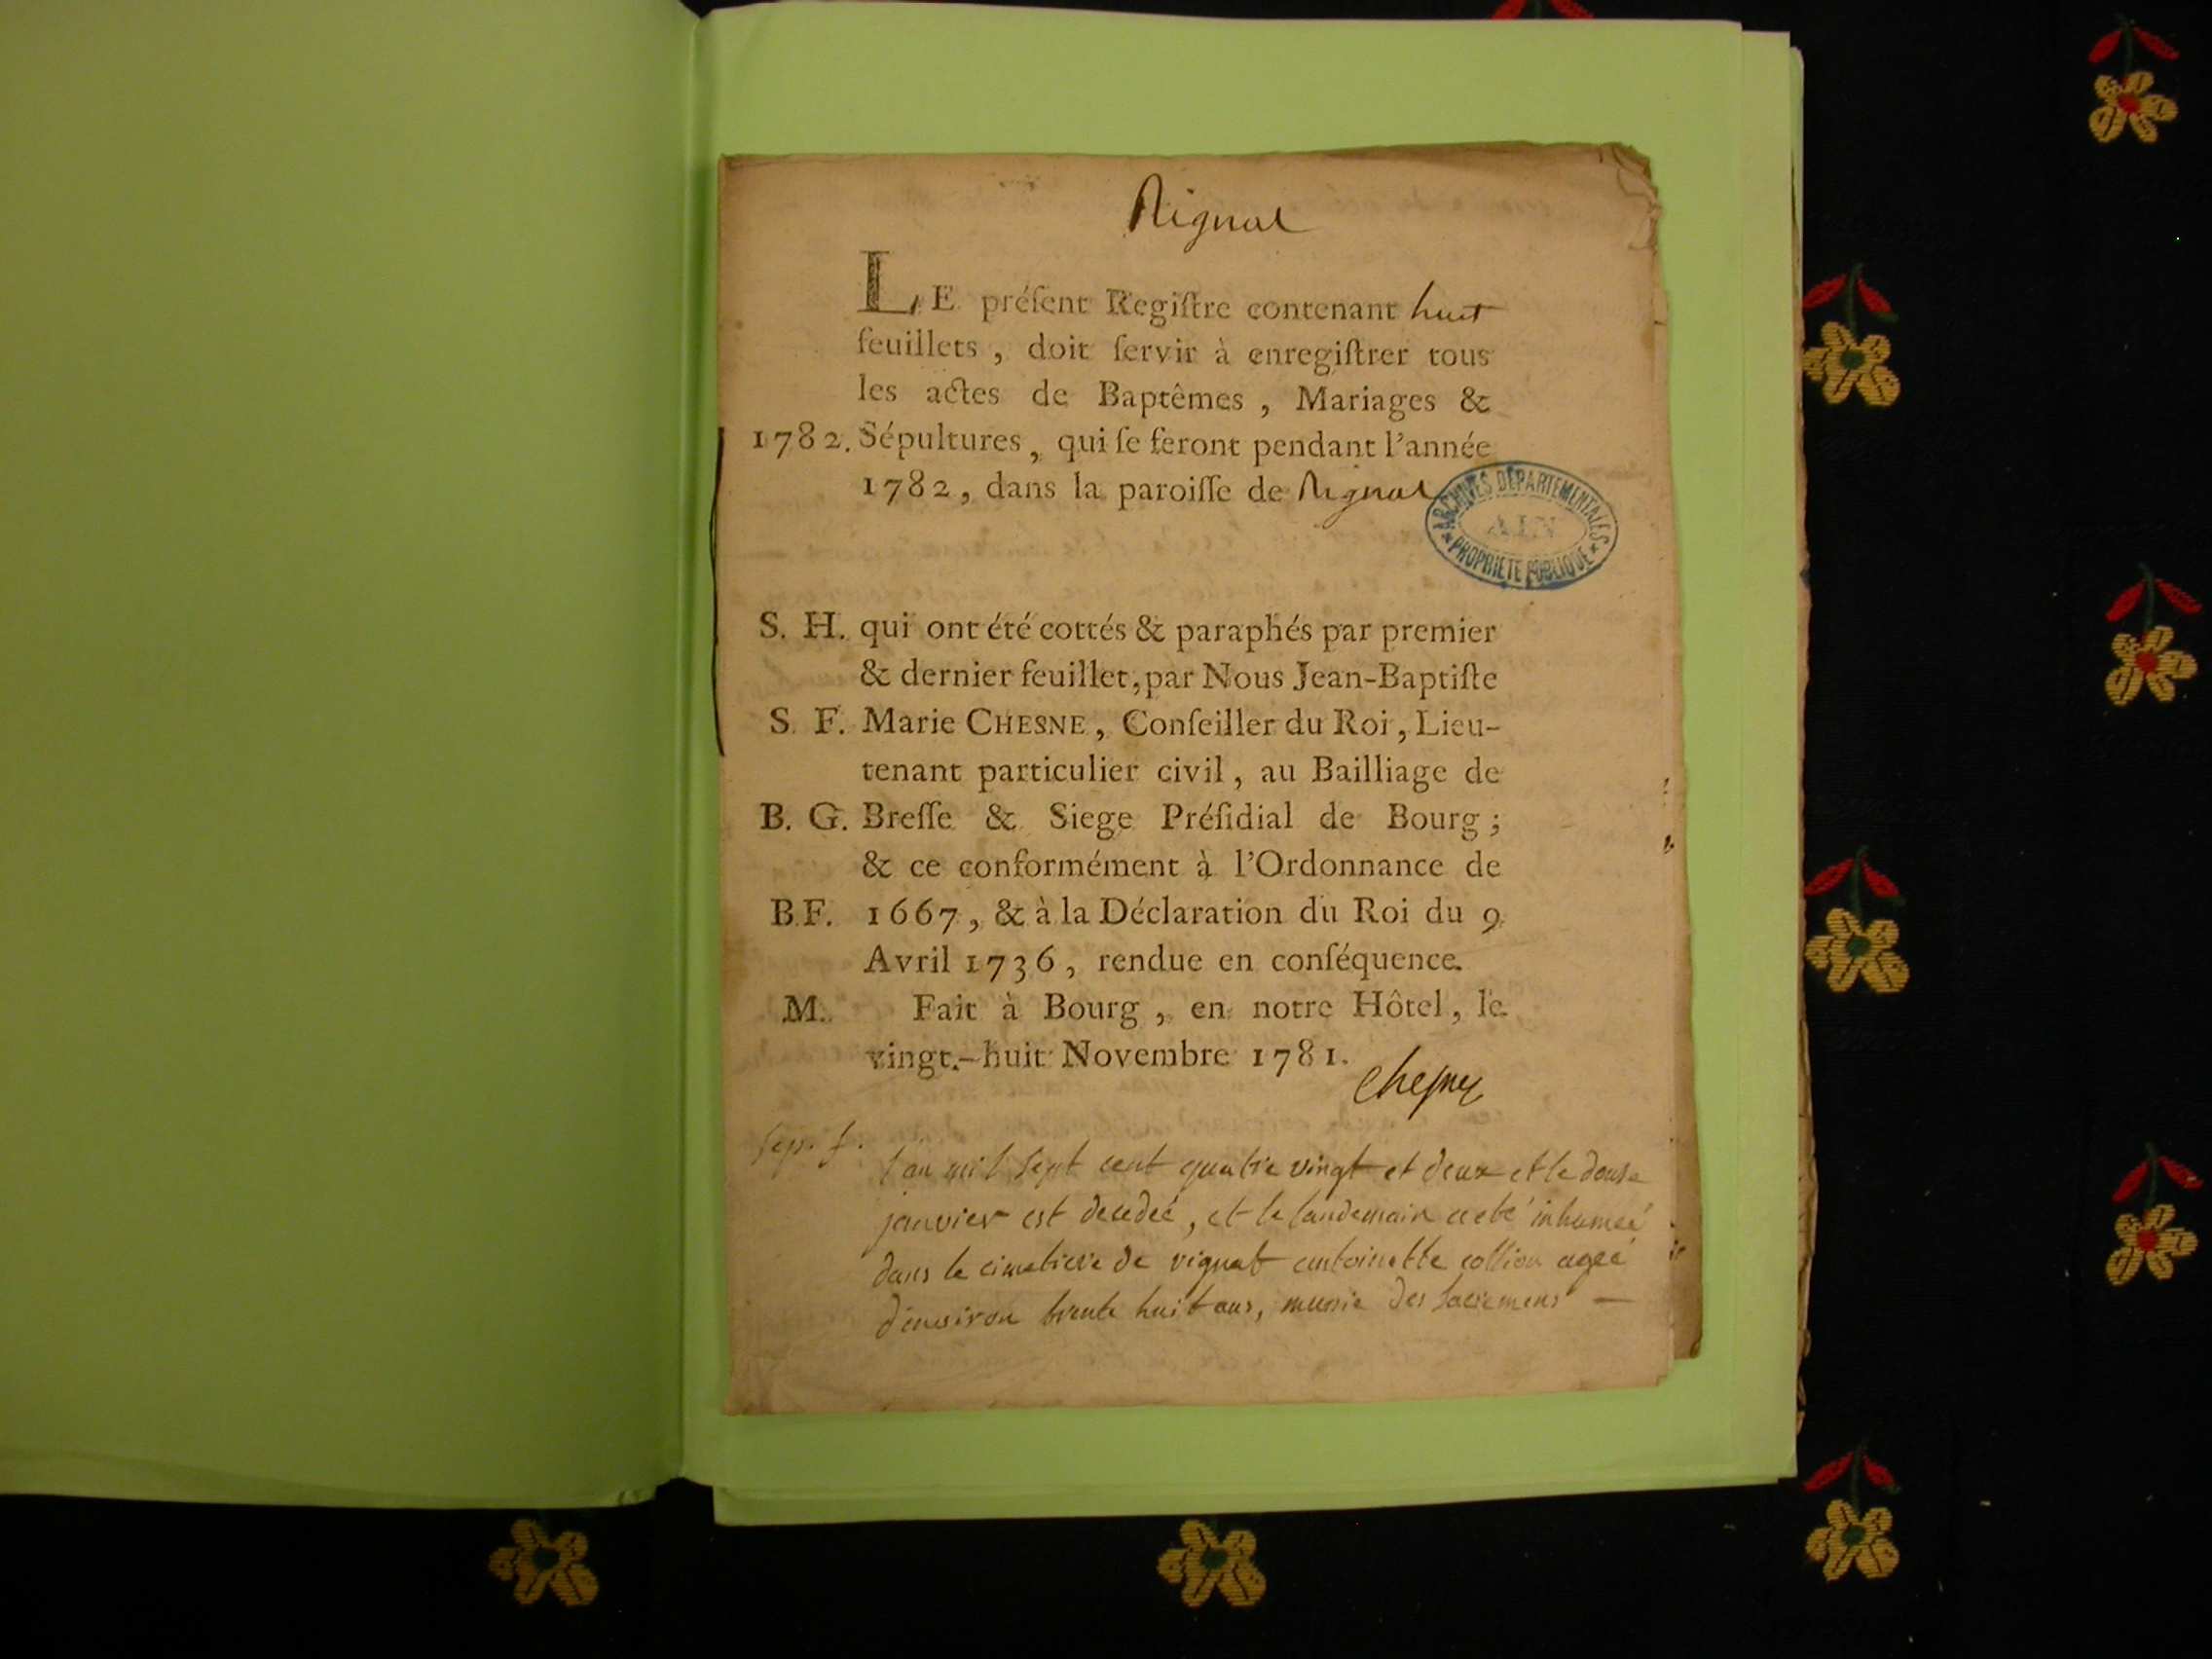 Rignat
LE préſent Regiſtre contenant huit
feuillets , doit ſervir à enregiſtrer tous
les actes de Baptêmes , Mariages &
1782. Sépultures, qui ſe feront pendant l'année
1782, dans la paroiſſe de Rignat
ARCHIVES DÉPARTEMENTALES
AIN
PROPRIÉTÉ PUBLIQUE
S. H. qui ont été cottés & paraphés par premier
& dernier feuillet, par Nous Jean-Baptiſte
S. F. Marie CHESNE, Conſeiller du Roi, Lieu-
tenant particulier civil, au Bailliage de
B. G. Breſſe & Siege Préſidial de Bourg;
& ce conformément à l'Ordonnance de
B.F. 1667, & à la Déclaration du Roi du 9
Avril 1736, rendue en conſéquence.
M. Fait à Bourg, en notre Hôtel, le
vingt-huit Novembre 1781.
Chesne
Sep. f.
l'an mil sept cent quatre vingt et deux et le douse
janvier est decedeé, et le landemain a eté inhumeé
dans le cimetiere de rignat antoinette collion ageé
d'environ trente huit ans, munie des sacremens —